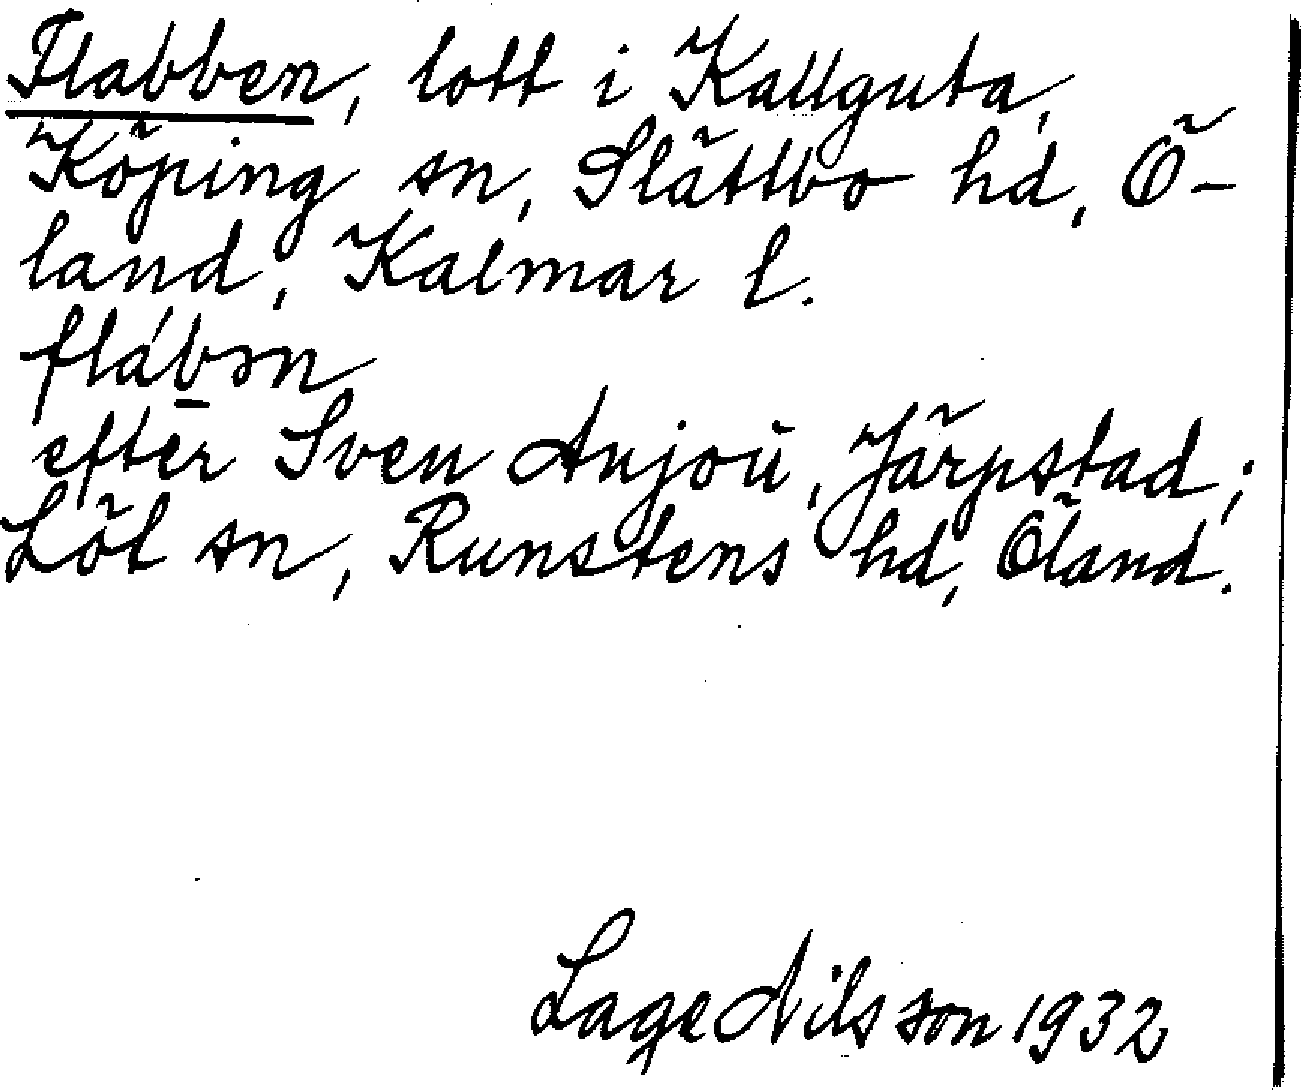 Flabben, lott i Kallguta,
Köping sn, Slättbo hd, Ö-
land, Kalmar l.
flábən
efter Sven Anjou, Järpstad,;
Löt sn, Runstens hd, Öland.
Lage Nilsson 1932